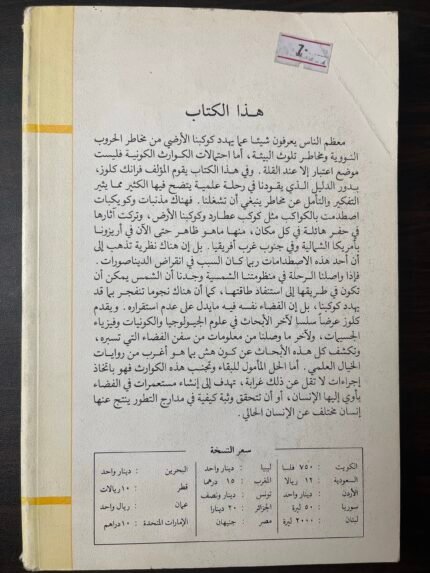 هذا الكتاب
معظم الناس يعرفون شيئا عما يهدد كوكبنا الأرضي من مخاطر الحروب
النووية ومخاطر تلوث البيئة، أما احتمالات الكوارث الكونية فليست
موضع اعتبار إلا عند القلة. وفي هذا الكتاب يقوم المؤلف فرانك كلوز،
بدور الدليل الذي يقودنا في رحلة علمية يتضح فيها الكثير مما يثير
التفكير والتأمل عن مخاطر ينبغي أن تشغلنا. فهناك مذنبات وكويكبات
اصطدمت بالكواكب مثل كوكب عطارد وكوكبنا الأرض، وتركت آثارها
في حفر هائلة في كل مكان، منها ماهو ظاهر حتى الآن في أريزونا
بأمريكا الشمالية وفي جنوب غرب أفريقيا. بل إن هناك نظرية تذهب إلى
أن أحد هذه الاصطدامات ربما كان السبب في انقراض الديناصورات.
فإذا واصلنا الرحلة في منظومتنا الشمسية وجدنا أن الشمس يمكن أن
تكون في طريقها إلى استنفاذ طاقتها، كما أن هناك نجوما تنفجر بما قد
يهدد كوكبنا، بل إن الفضاء نفسه فيه مايدل على عدم استقراره. ويقدم
كلوز عرضاً سلسا لآخر الأبحاث في علوم الجيولوجيا والكونيات وفيزياء
الجسيمات، ولآخر ما وصلنا من معلومات من سفن الفضاء التي تسبره،
وتكشف كل هذه الأبحاث عن كون هش بما هو أغرب من روايات
الخيال العلمي. أما الحل المأمول للبقاء وتجنب هذه الكوارث فهو باتخاذ
إجراءات لا تقل عن ذلك غرابة، تهدف إلى إنشاء مستعمرات في الفضاء
يأوي إليها الإنسان، أو أن تتحقق وثبة كيفية في مدارج التطور ينتج عنها
إنسان مختلف عن الإنسان الحالي.
سعر النسخة
الكويت : ٧٥٠ فلسا ليبيا : دينار واحد البحرين : دينار واحد
السعودية : ١٢ ريالا المغرب : ١٥ درهما قطر : ١٠ ريالات
الأردن : دينار واحد تونس : دينار ونصف عمان : ريال واحد
سوريا : ٥٠ ليرة الجزائر : ٢٠ دينارا الإمارات المتحدة : ١٠ دراهم
لبنان : ٢٠٠٠ ليرة مصر : جنيهان